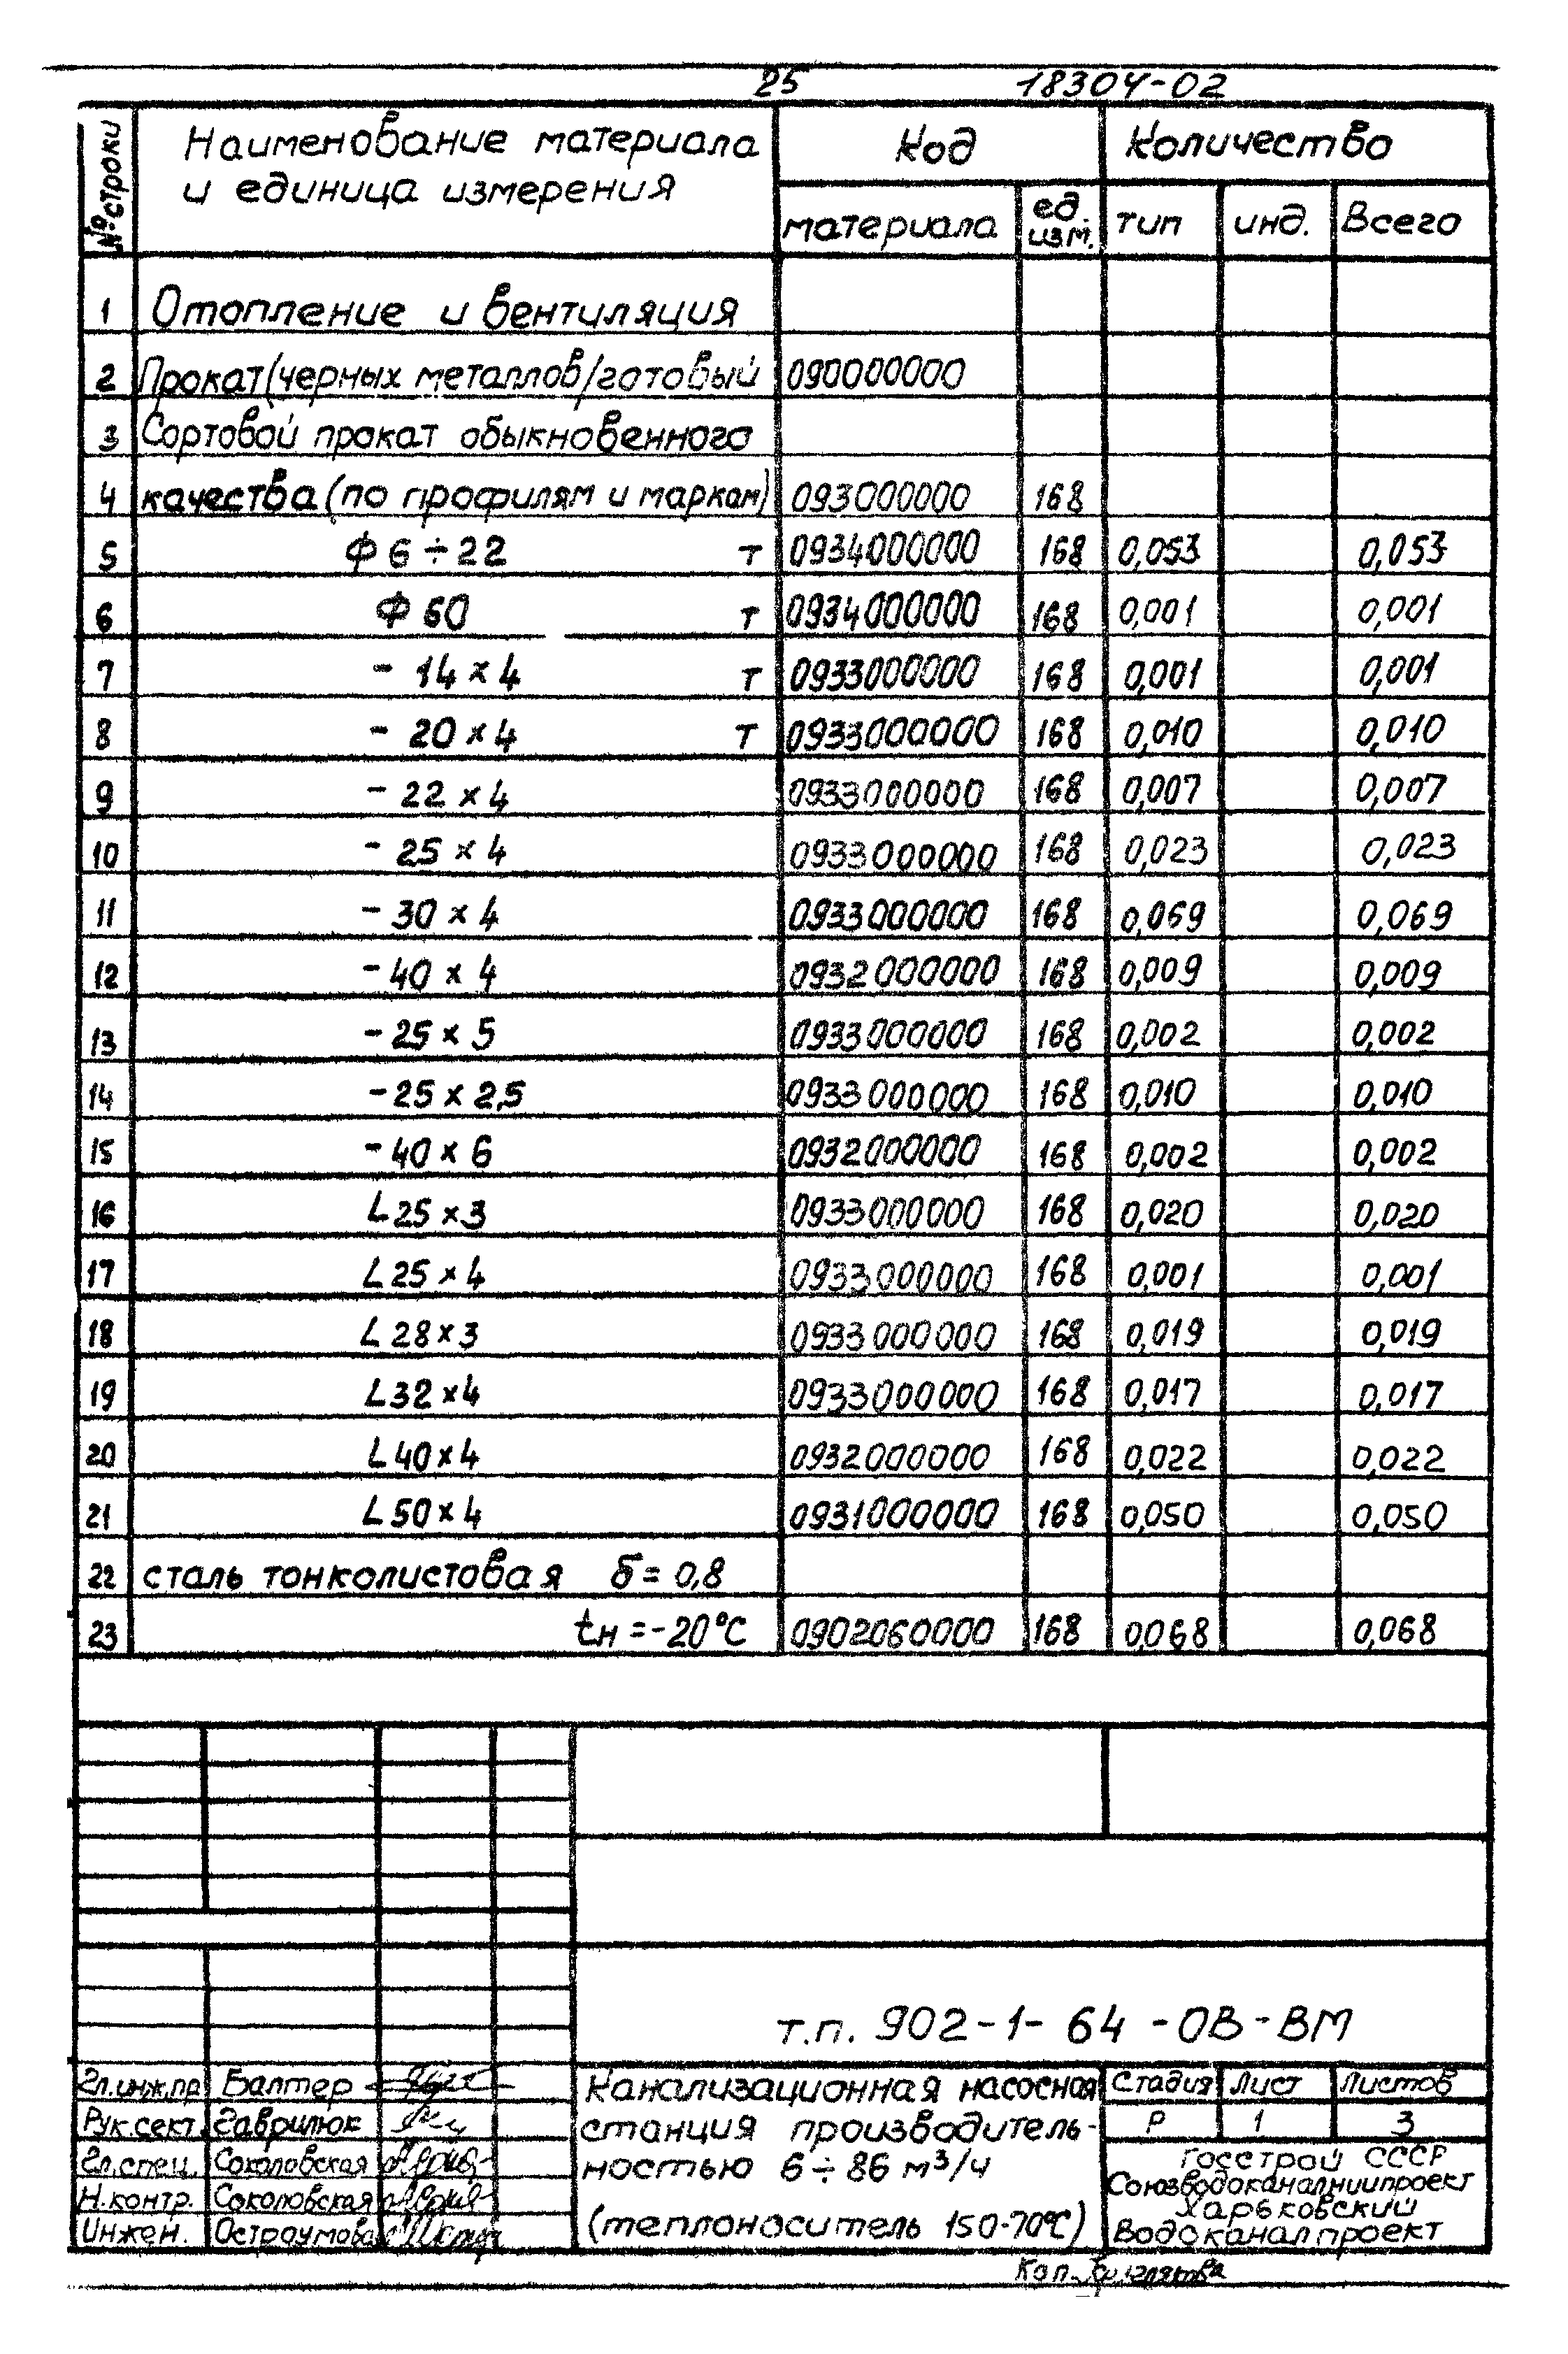 25 18304-02
№ строки
Наименование материала
и единица измерения
Код
Количество
материала
ед. изм.
тип
инд.
Всего
1 Отопление и вентиляция
2 Прокат (черных металлов/готовый 090000000
3 Сортовой прокат обыкновенного
4 качества (по профилям и маркам) 093000000 168
5 Ф 6 ÷ 22 т 0934000000 168 0,053 0,053
6 Ф 60 т 0934000000 168 0,001 0,001
7 - 14 × 4 т 0933000000 168 0,001 0,001
8 - 20 × 4 т 0933000000 168 0,010 0,010
9 - 22 × 4 0933000000 168 0,007 0,007
10 - 25 × 4 0933000000 168 0,023 0,023
11 - 30 × 4 0933000000 168 0,069 0,069
12 - 40 × 4 0932000000 168 0,009 0,009
13 - 25 × 5 0933000000 168 0,002 0,002
14 - 25 × 2,5 0933000000 168 0,010 0,010
15 - 40 × 6 0932000000 168 0,002 0,002
16 L 25 × 3 0933000000 168 0,020 0,020
17 L 25 × 4 0933000000 168 0,001 0,001
18 L 28 × 3 0933000000 168 0,019 0,019
19 L 32 × 4 0933000000 168 0,017 0,017
20 L 40 × 4 0932000000 168 0,022 0,022
21 L 50 × 4 0931000000 168 0,050 0,050
22 сталь тонколистовая δ = 0,8
23 tн = -20°С 0902060000 168 0,068 0,068
т.п. 902-1-64-ОВ-ВМ
Гл.инж.пр Балтер
Рук.сект. Гаврилюк
Гл.спец. Соколовская
Н.контр. Соколовская
Инжен. Остроумова
Канализационная насосная
станция производитель-
ностью 6 ÷ 86 м³/ч
(теплоноситель 150-70°С)
Стадия Лист Листов
Р 1 3
Госстрой СССР
Союзводоканалниипроект
Харьковский
Водоканалпроект
Коп.